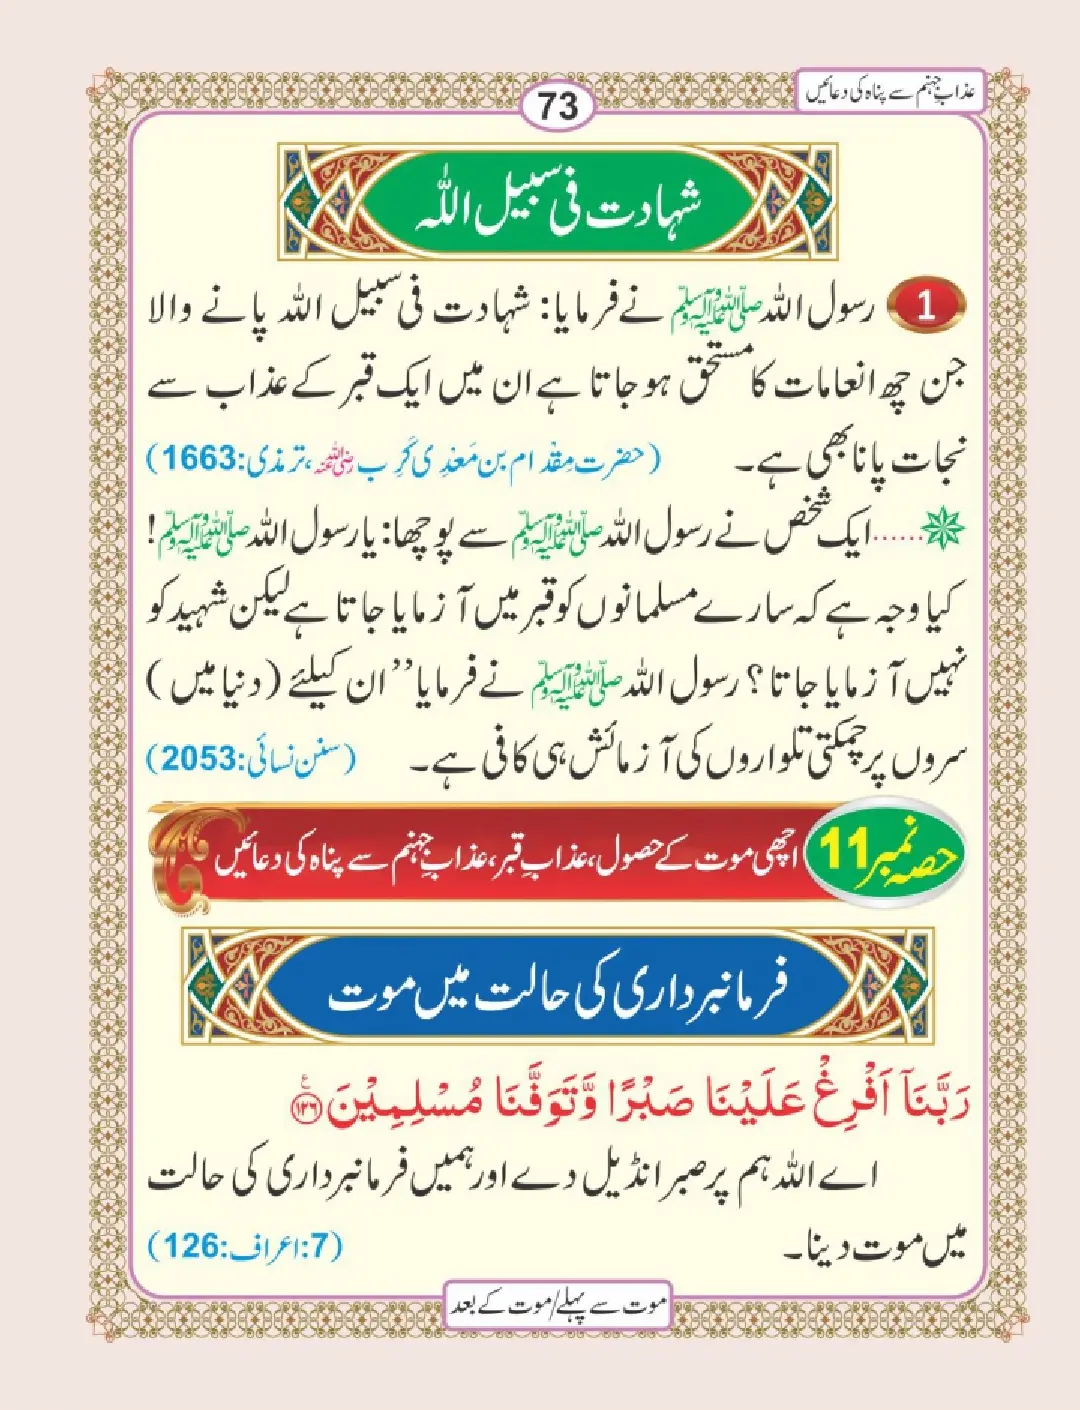 عذابِ جہنم سے پناہ کی دعائیں
73
شہادت فی سبیل اللہ
1 رسول اللہ ﷺ نے فرمایا: شہادت فی سبیل اللہ پانے والا
جن چھ انعامات کا مستحق ہو جاتا ہے ان میں ایک قبر کے عذاب سے
نجات پانا بھی ہے۔ (حضرت مِقدْام بن مَعْدِی کَرِب رضی اللہ عنہ، ترمذی:1663)
......ایک شخص نے رسول اللہ ﷺ سے پوچھا: یا رسول اللہ ﷺ!
کیا وجہ ہے کہ سارے مسلمانوں کو قبر میں آزمایا جاتا ہے لیکن شہید کو
نہیں آزمایا جاتا؟ رسول اللہ ﷺ نے فرمایا ’’ان کیلئے (دنیا میں)
سروں پر چمکتی تلواروں کی آزمائش ہی کافی ہے۔ (سنن نسائی:2053)
حصہ نمبر 11 اچھی موت کے حصول، عذابِ قبر، عذابِ جہنم سے پناہ کی دعائیں
فرمانبرداری کی حالت میں موت
رَبَّنَآ اَفْرِغْ عَلَيْنَا صَبْرًا وَّتَوَفَّنَا مُسْلِمِيْنَ ﴿۱۲۶﴾ ع
اے اللہ ہم پر صبر انڈیل دے اور ہمیں فرمانبرداری کی حالت
میں موت دینا۔ (7:اعراف:126)
موت سے پہلے/موت کے بعد